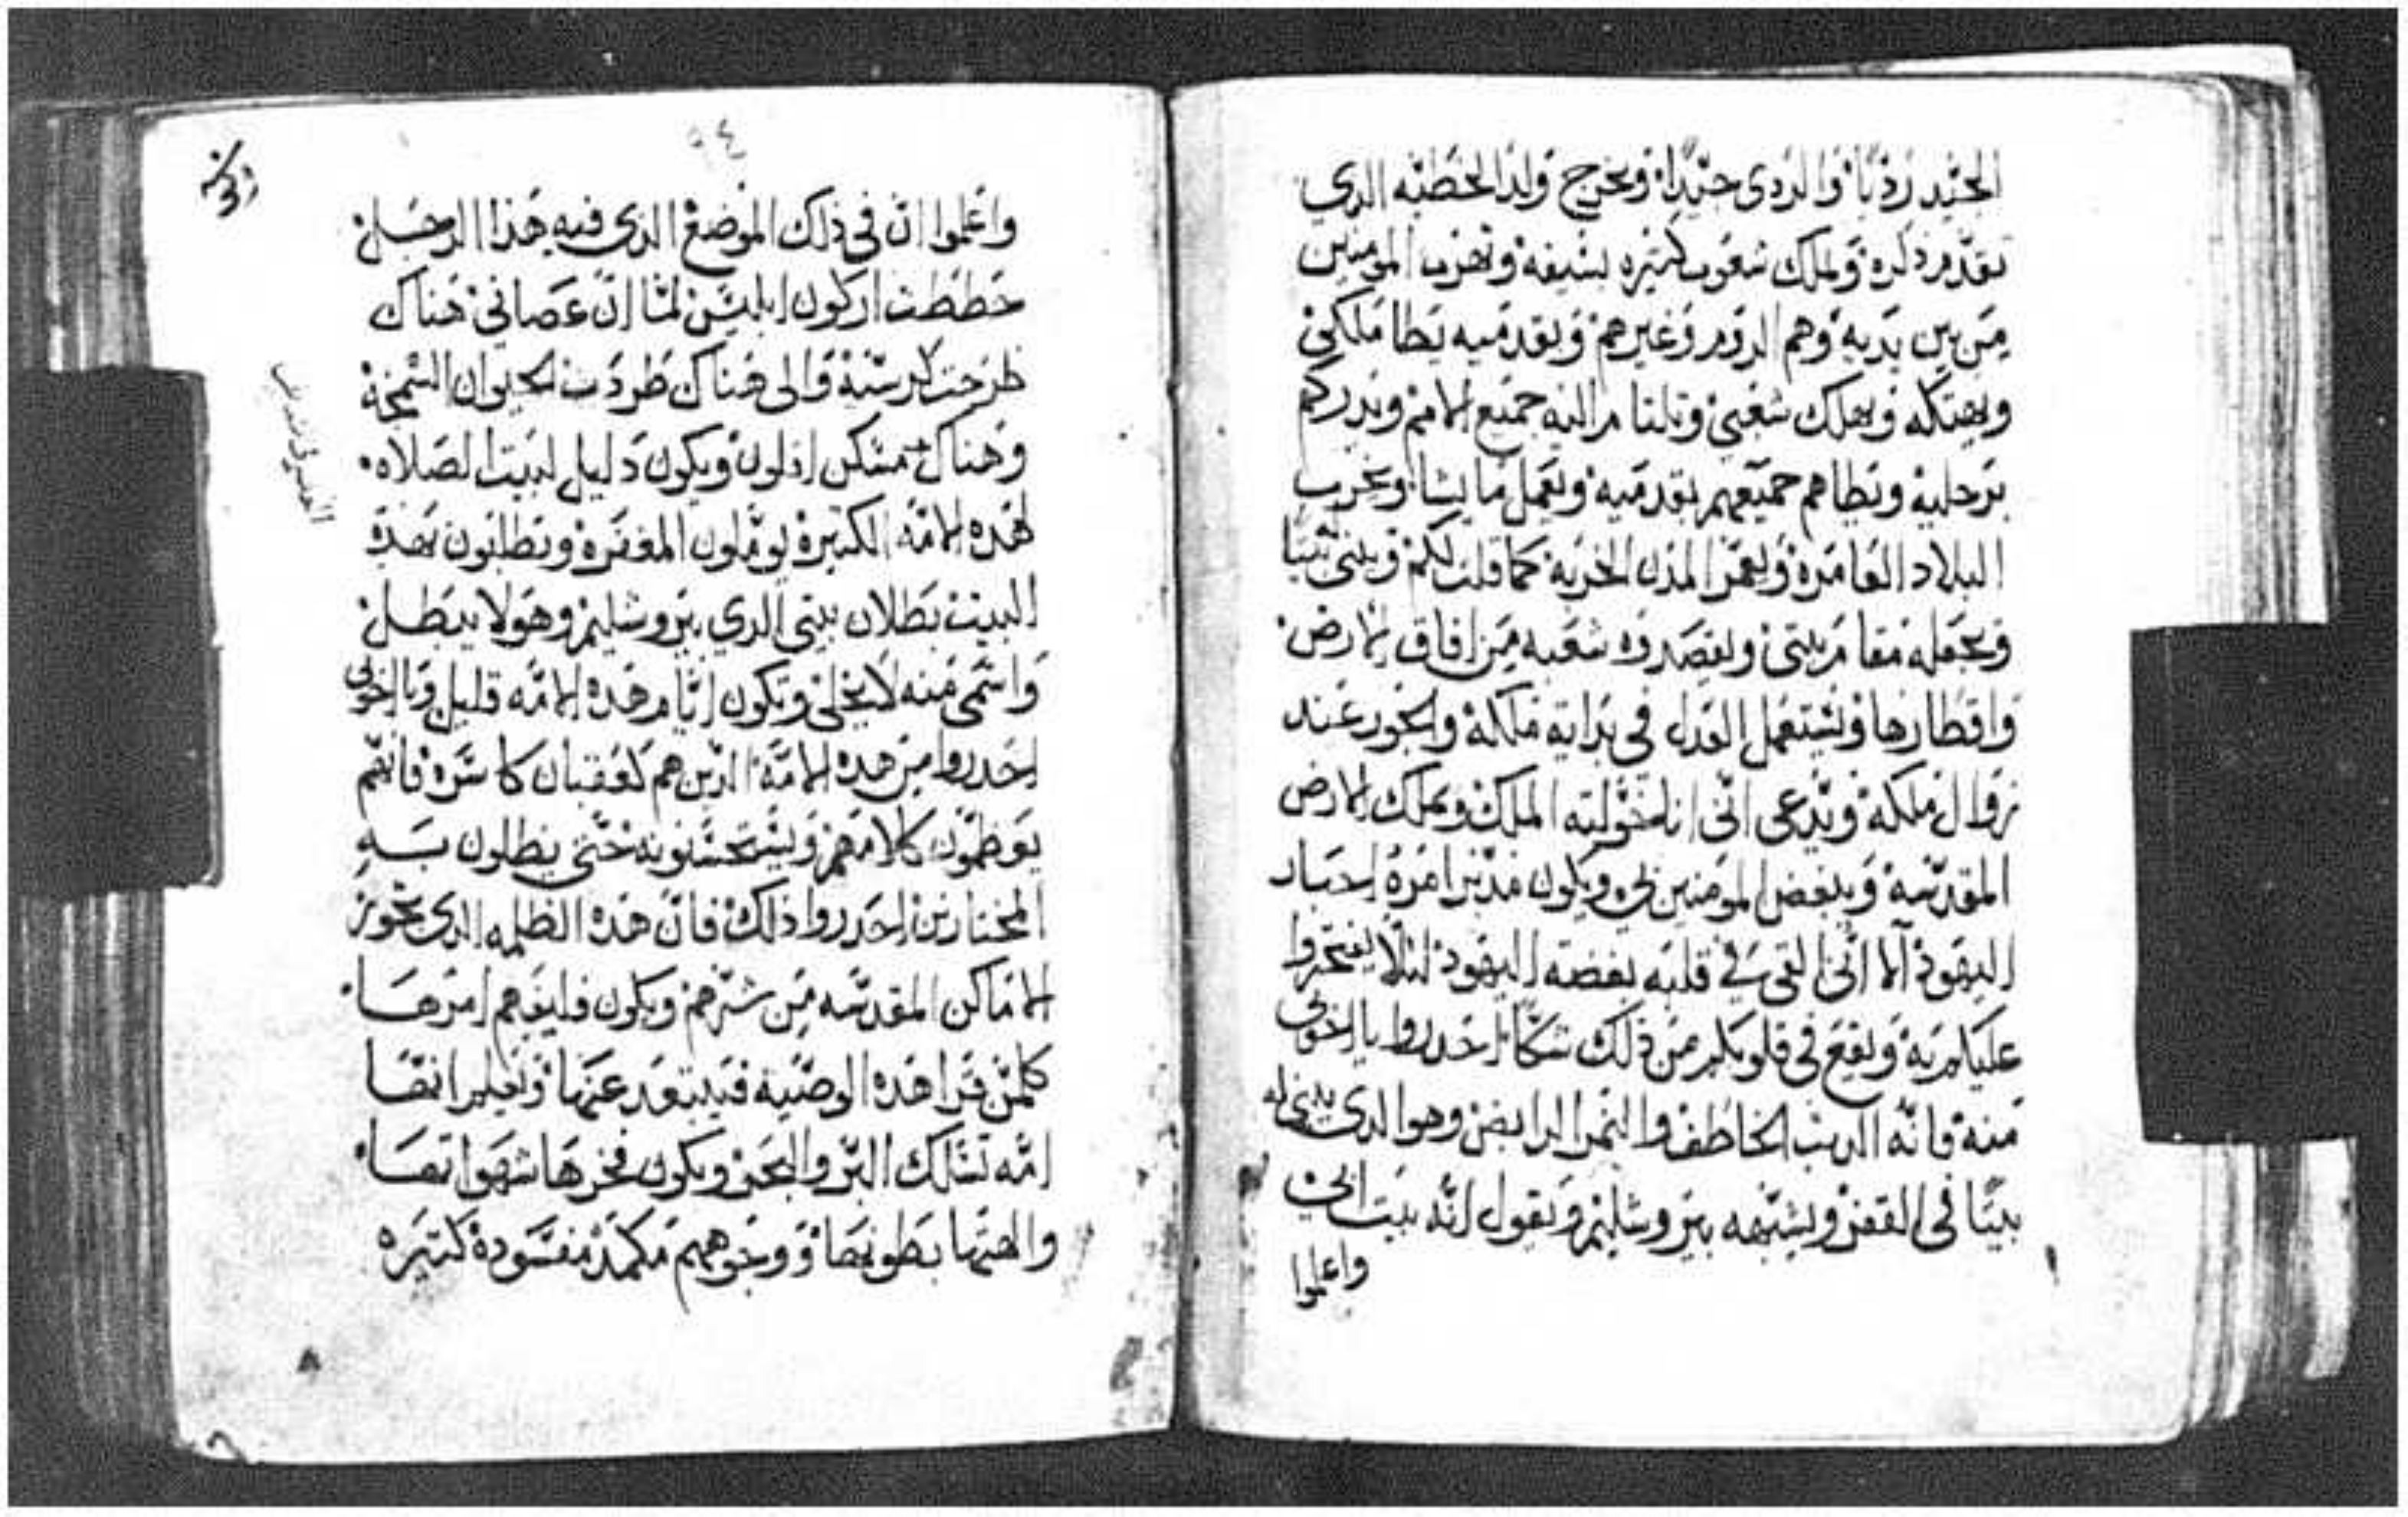 الجيد رديا والردى جيدا ويخرج ولد الخطيه الدي
تقدم دكره ويملك شعوب كتيره بسيفه وتهرب المومنين
من بين يديه وهم الروم وغيرهم وبقدميه يطا ملكي
ويهتكه ويهلك شعبي وتلتام اليه جميع الامم ويدركهم
برجليه ويطاهم جميعهم بقدميه ويعمل ما يشا ويخرب
البلاد العامره ويعمر المدن الخربه كما قلت لكم ويبني بيتا
ويجعله مقام بيتي ويقصدوه شعبه من افاق الارض
واقطارها ويستعمل العدل في بداية ملكه والجور عند
زوال ملكه ويدعى انني انا خولته الملك ويملك الارض
المقدسه ويبغض المومنين بي ويكون مدبر امره احبار
اليهود الا انني القي في قلبه بغضه اليهود ليلا يفتخروا
عليكم به ويقع في قلوبكم من ذلك شكا احدروا يا اخوتي
منه فانه الديب الخاطف والنمر الرابض وهو الدى يبني له
بيتا في القفر ويشبهه بيروشليم ويقول انه بيت ابي
واعلموا
واعلموا ان في ذلك الموضع الدى فيه هذا الرجل
حططت اركون ابليس لما ان عصاني هناك
طرحت كرسيه والى هناك طردت الحيوان السمجة
وهناك مسكن اركون ويكون دليل لبيت الصلاه
لهده الامه الكتيره يوملون المغفره ويطلبون بهدا
البيت بطلان بيتي الدي بيروشليم وهو لا يبطل
واسمى منه لا يخلى ويكون ايام هده الامه قليل ويا اخوتي
احدروا من هده الامه الدين هم كعقبان كاسره فانهم
يعظمون كلامهم ويستحسنونه حتى يضلون به
المختارين احدروا ذلك فان هده الظلمه الدى تحوز
الاماكن المقدسه من شرهم ويكون فليفهم امرها
كلمن قرا هده الوصيه فيبتعد عنها وليعلم انها
امه تسلك البر والبحر ويكون فخرها شهواتها
والهتها بطونها ووجوههم مكمده مسوده كتيره